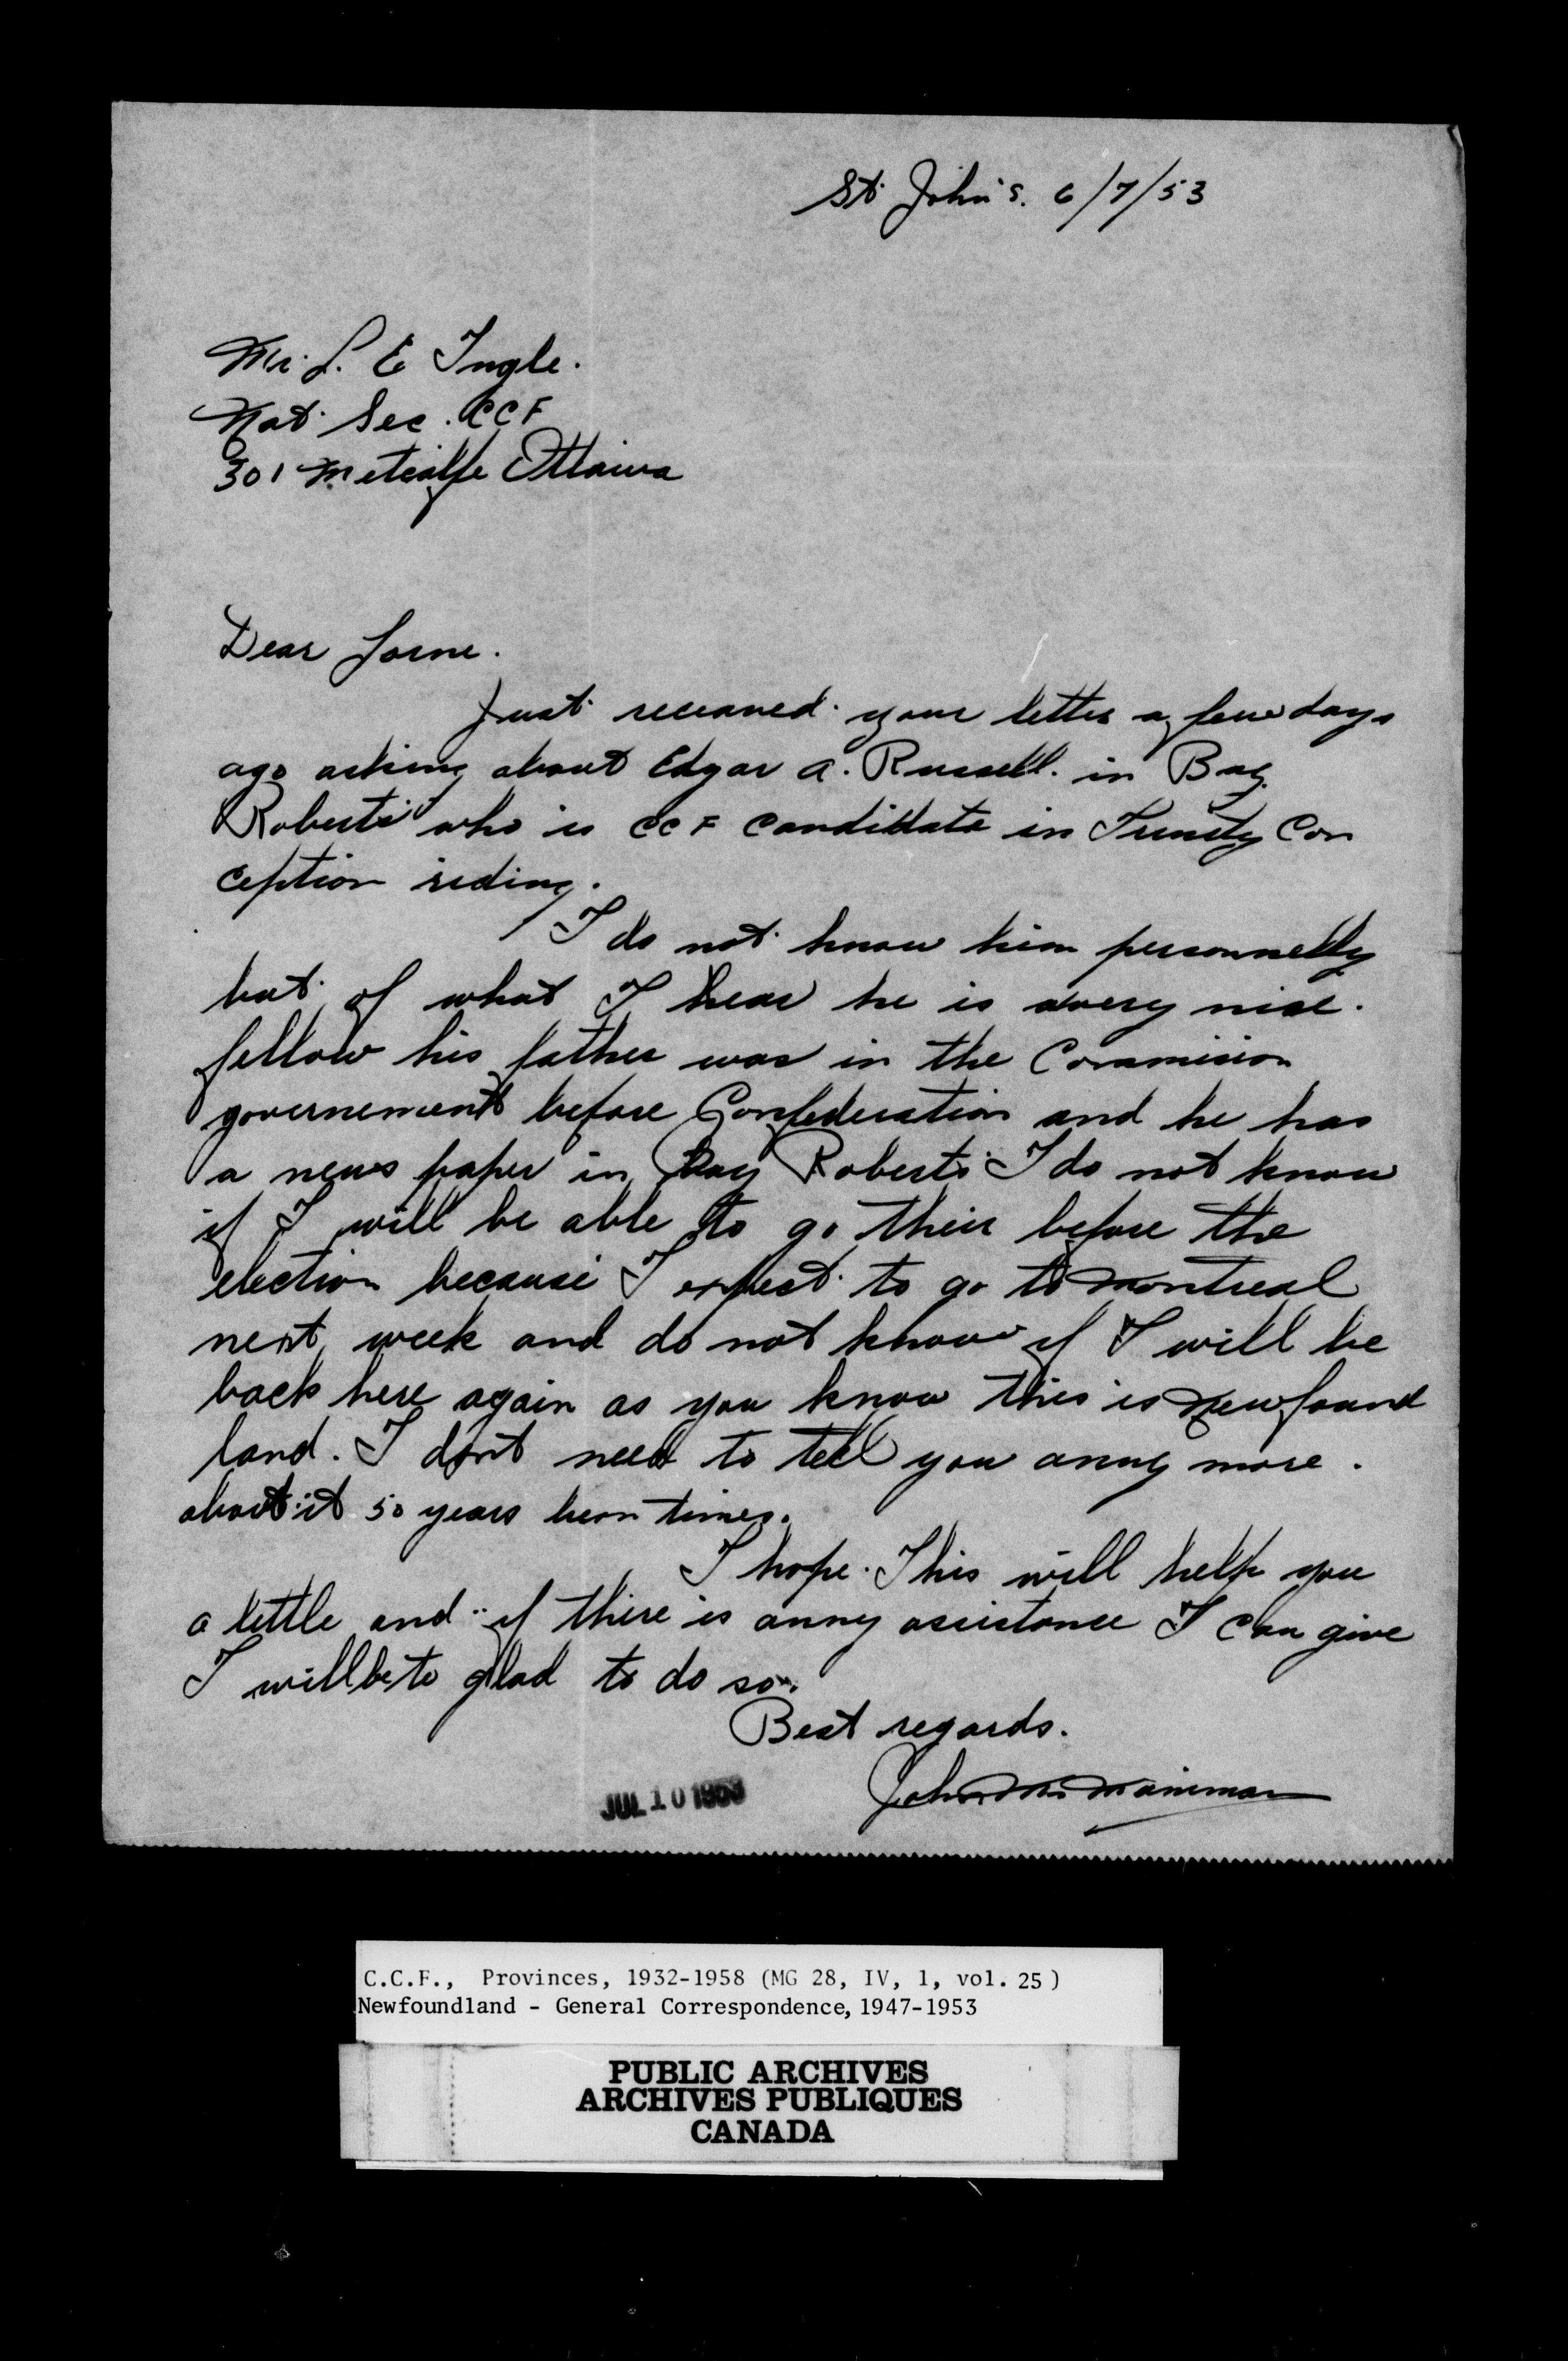 St. John's. 6/7/53
Mr. L. E Ingle.
Nat. Sec. CCF
301 Metcalfe Ottawa
Dear Lorne.
Just receaved your letter a few days
ago asking about Edgar A. Russell. in Bay
Roberts who is CCF candidate in Trinity Con
ception riding.
I do not know him personnelly
but of what I hear he is avery nice.
fellow his father was in the Commision
governement before Confederation and he has
a news paper in Bay Roberts I do not know
if I will be able to go their before the
election because I expect to go to Montreal
next week and do not know if I will be
back here again as you know this is Newfound
land. I dont need to tell you anny more.
about it 50 years times.
I hope. This will help you
a little and if there is anny assistance I can give
I will be to glad to do so.
Best regards.
John
JUL 10 1953
C.C.F., Provinces, 1932-1958 (MG 28, IV, 1, vol. 25)
Newfoundland - General Correspondence, 1947-1953
PUBLIC ARCHIVES
ARCHIVES PUBLIQUES
CANADA